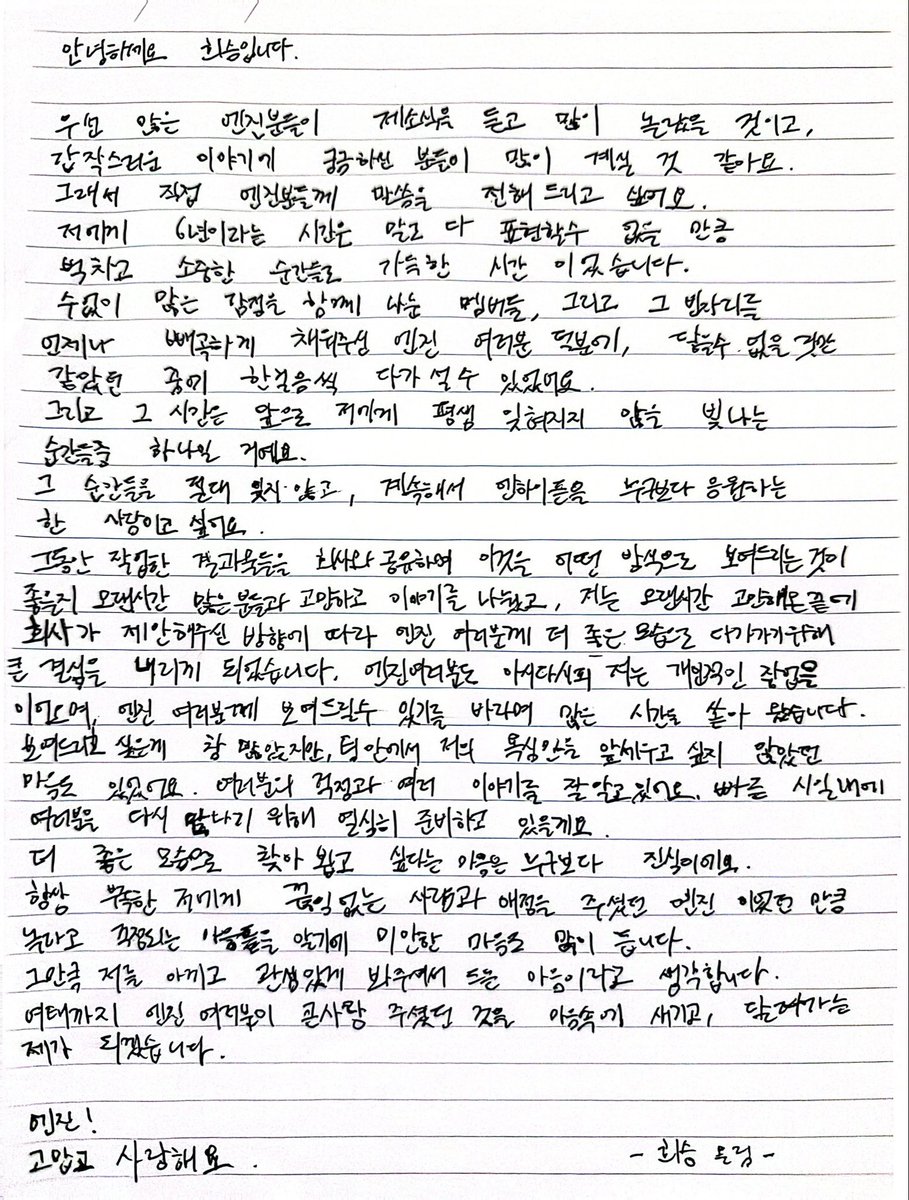 안녕하세요 희승입니다.
우선 많은 엔진분들이 제소식을 듣고 많이 놀랐을 것이고,
갑작스러운 이야기에 궁금하신 분들이 많이 계실 것 같아요.
그래서 직접 엔진분들께 말씀을 전해 드리고 싶어요.
저에게 6년이라는 시간은 말로 다 표현할수 없을 만큼
벅차고 소중한 순간들로 가득한 시간 이었습니다.
수없이 많은 감정을 함께 나눈 멤버들, 그리고 그 빈자리를
언제나 빼곡하게 채워주신 엔진 여러분 덕분에, 닿을수 없을 것만
같았던 꿈에 한걸음씩 다가 설수 있었어요.
그리고 그 시간은 앞으로 저에게 평생 잊혀지지 않을 빛나는
순간들중 하나일 거예요.
그 순간들을 절대 잊지 않고, 계속해서 엔하이픈을 누구보다 응원하는
한 사람이고 싶어요.
그동안 작업한 결과물들을 회사와 공유하며 이것을 어떤 방식으로 보여드리는것이
좋을지 오랜시간 많은분들과 고민하고 이야기를 나눴고, 저는 오랜시간 고민해온끝에
회사가 제안해주신 방향에 따라 엔진 여러분께 더 좋은 모습으로 다가가기위해
큰 결심을 내리게 되었습니다. 엔진여러분도 아시다시피 저는 개인적인 작업을
이어오며, 엔진 여러분께 보여드릴수 있기를 바라며 많은 시간을 쏟아 왔습니다.
보여드리고 싶은게 참 많았지만, 팀 안에서 저의 욕심만을 앞세우고 싶지 않았던
마음도 있었어요. 여러분의 걱정과 여러 이야기를 잘 알고있어요. 빠른 시일내에
여러분을 다시 만나기 위해 열심히 준비하고 있을게요.
더 좋은 모습으로 찾아 뵙고 싶다는 마음은 누구보다 진심이에요.
항상 부족한 저에게 끊임없는 사랑과 애정을 주셨던 엔진 이었던 만큼
놀라고 걱정되는 마음들을 알기에 미안한 마음도 많이 듭니다.
그만큼 저를 아끼고 관심있게 봐주셔서 드는 마음이라고 생각합니다.
여태까지 엔진 여러분이 큰사랑 주셨던 것을 마음속에 새기고, 달려가는
제가 되겠습니다.
엔진!
고맙고 사랑해요.
- 희승 드림 -